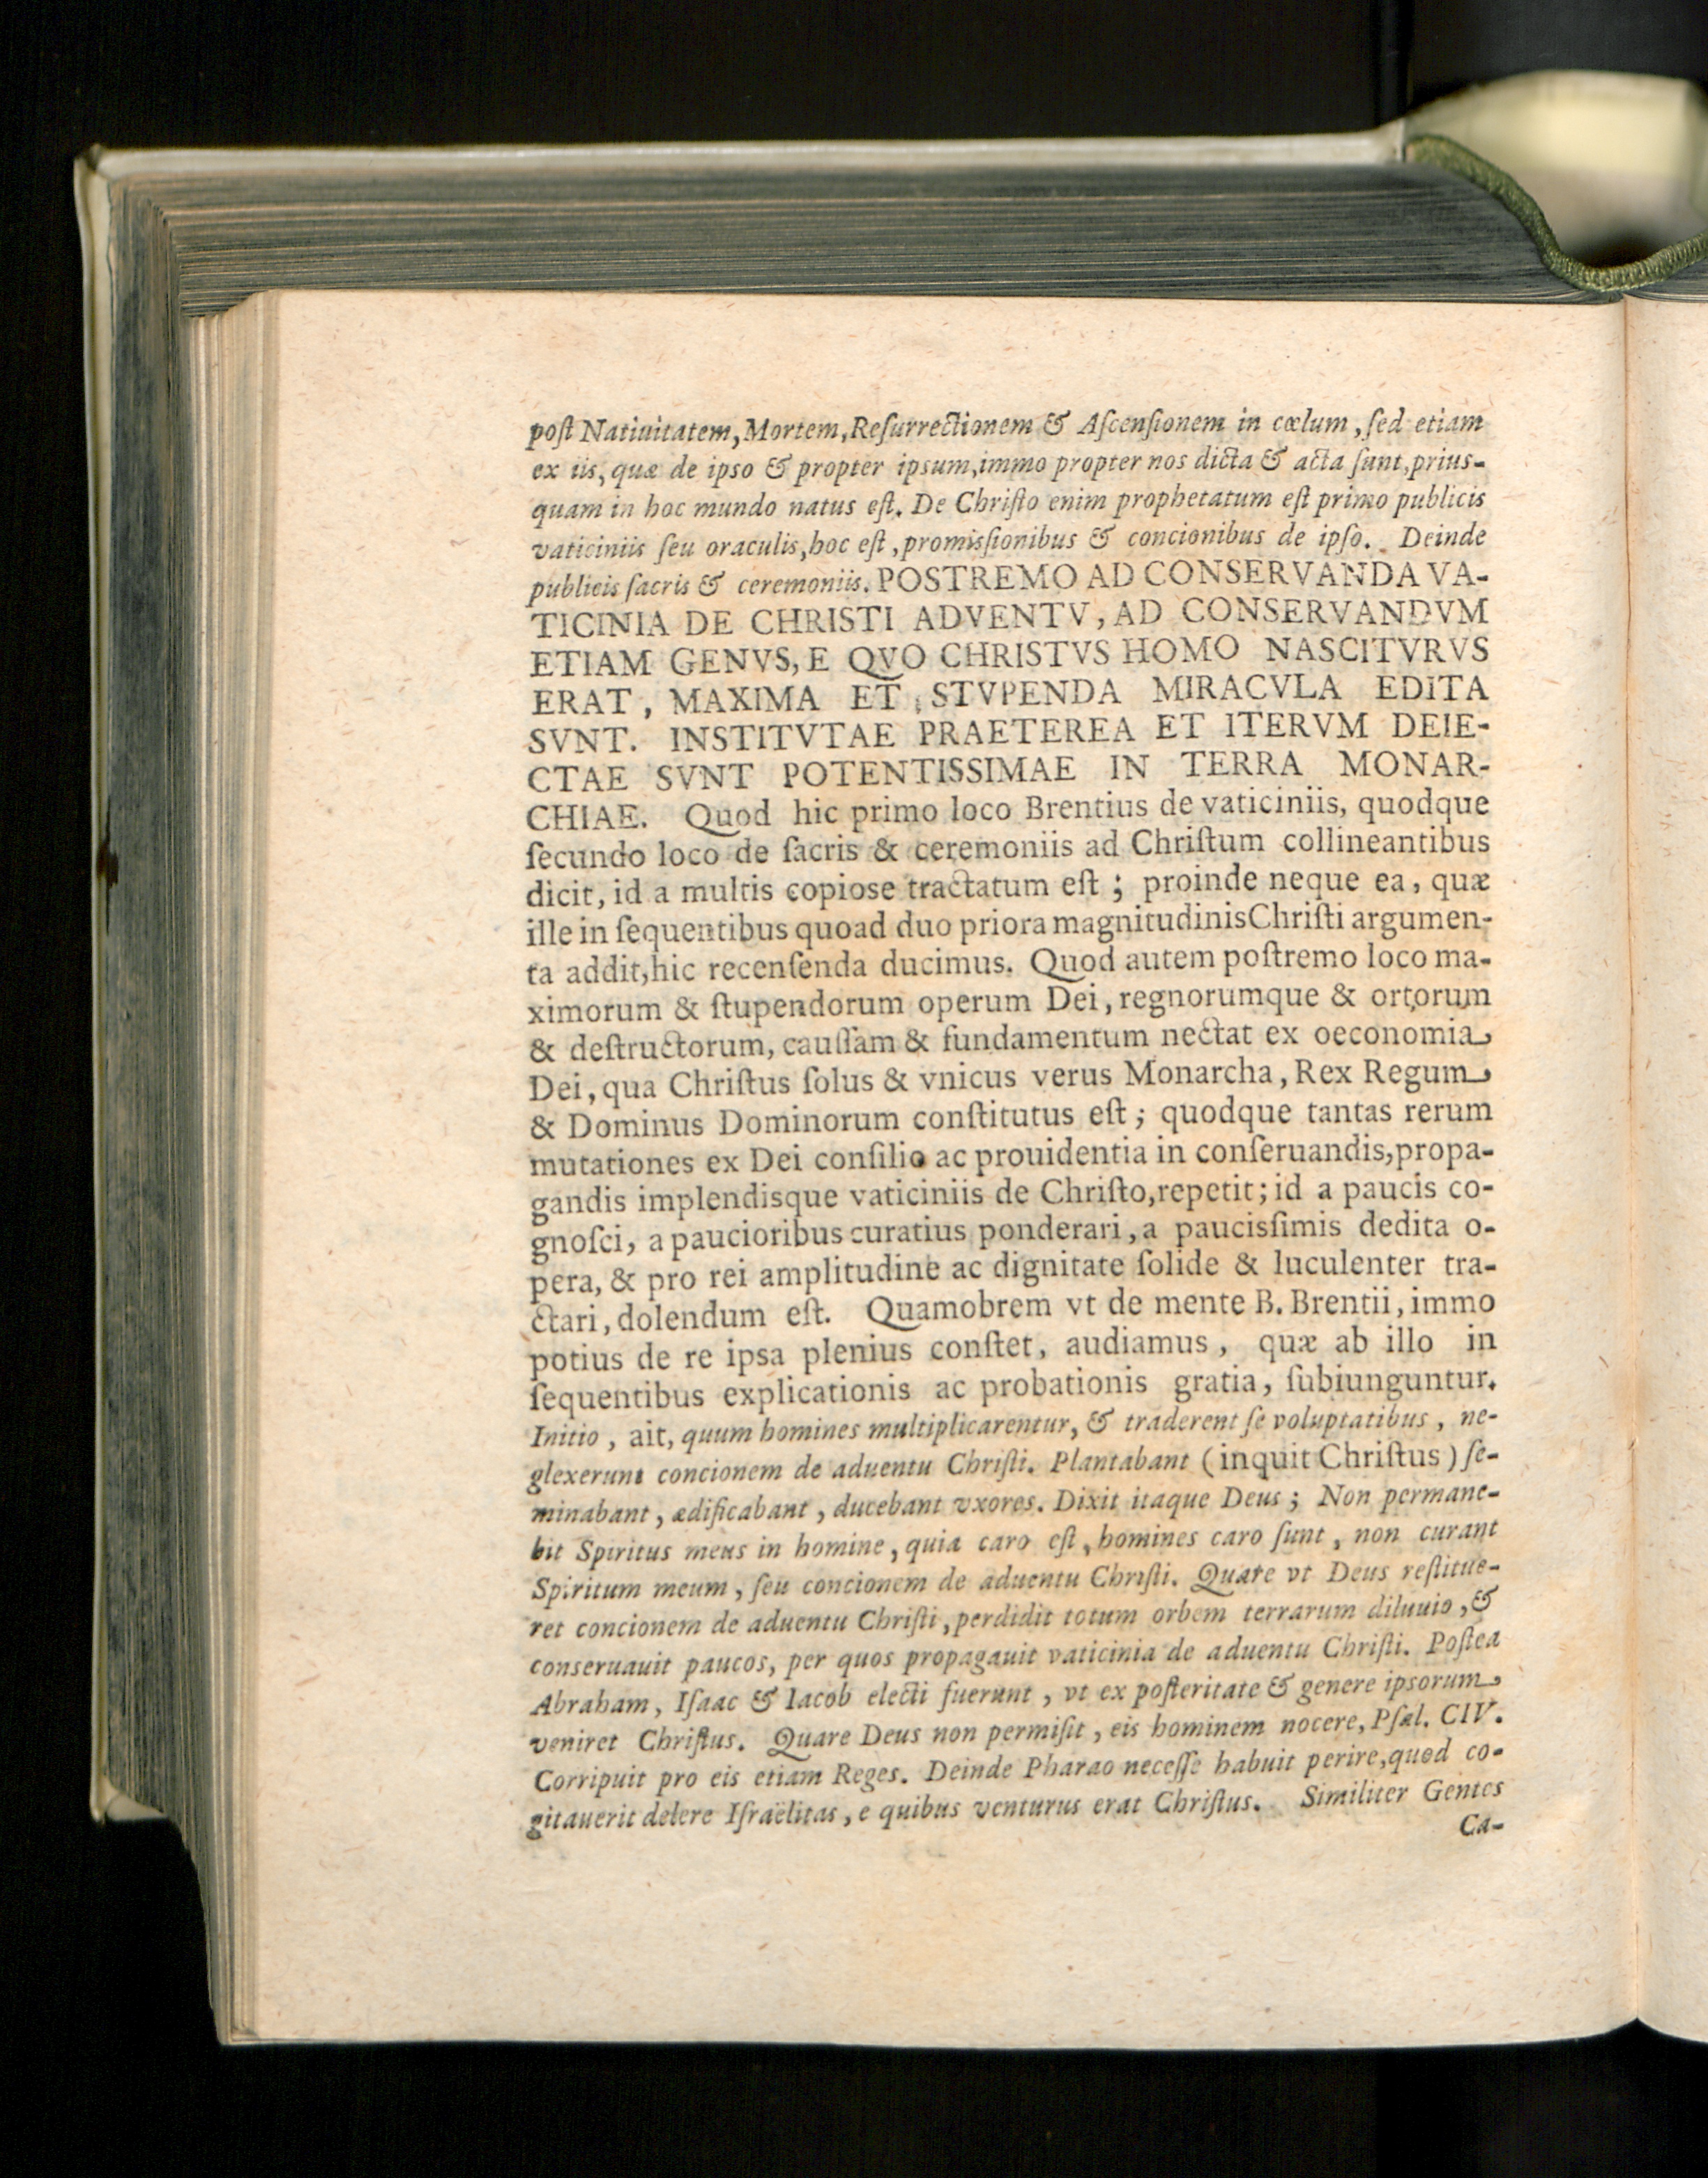 poſt Natiuitatem, Mortem, Reſurrectionem & Aſcenſionem in cœlum, ſed etiam
ex iis, quæ de ipso & propter ipsum, immo propter nos dicta & acta ſunt, prius-
quam in hoc mundo natus eſt. De Chriſto enim prophetatum eſt primo publicis
vaticiniis ſeu oraculis, hoc eſt, promisſionibus & concionibus de ipſo. Deinde
publicis ſacris & ceremoniis. POSTREMO AD CONSERVANDA VA-
TICINIA DE CHRISTI ADVENTV, AD CONSERVANDVM
ETIAM GENVS, E QVO CHRISTVS HOMO NASCITVRVS
ERAT, MAXIMA ET STVPENDA MIRACVLA EDITA
SVNT. INSTITVTAE PRAETEREA ET ITERVM DEIE-
CTAE SVNT POTENTISSIMAE IN TERRA MONAR-
CHIAE. Quod hic primo loco Brentius de vaticiniis, quodque
ſecundo loco de ſacris & ceremoniis ad Chriſtum collineantibus
dicit, id a multis copiose tractatum eſt; proinde neque ea, quæ
ille in ſequentibus quoad duo priora magnitudinis Chriſti argumen-
ta addit, hic recenſenda ducimus. Quod autem poſtremo loco ma-
ximorum & ſtupendorum operum Dei, regnorumque & ortorum
& deſtructorum, cauſſam & fundamentum nectat ex oeconomia
Dei, qua Chriſtus ſolus & vnicus verus Monarcha, Rex Regum
& Dominus Dominorum conſtitutus eſt; quodque tantas rerum
mutationes ex Dei conſilio ac prouidentia in conſeruandis, propa-
gandis implendisque vaticiniis de Chriſto, repetit; id a paucis co-
gnoſci, a paucioribus curatius ponderari, a paucisſimis dedita o-
pera, & pro rei amplitudine ac dignitate ſolide & luculenter tra-
ctari, dolendum eſt. Quamobrem vt de mente B. Brentii, immo
potius de re ipsa plenius conſtet, audiamus, quæ ab illo in
ſequentibus explicationis ac probationis gratia, ſubiunguntur.
Initio, ait, quum homines multiplicarentur, & traderent ſe voluptatibus, ne-
glexerunt concionem de aduentu Chriſti. Plantabant (inquit Chriſtus) ſe-
minabant, ædificabant, ducebant vxores. Dixit itaque Deus; Non permane-
bit Spiritus meus in homine, quia caro eſt, homines caro ſunt, non curant
Spiritum meum, ſeu concionem de aduentu Chriſti. Quare vt Deus reſtitue-
ret concionem de aduentu Chriſti, perdidit totum orbem terrarum diluuio, &
conseruauit paucos, per quos propagauit vaticinia de aduentu Chriſti. Poſtea
Abraham, Iſaac & Iacob electi fuerunt, vt ex poſteritate & genere ipsorum
veniret Chriſtus. Quare Deus non permiſit, eis hominem nocere, Pſal. CIV.
Corripuit pro eis etiam Reges. Deinde Pharao neceſſe habuit perire, quod co-
gitauerit delere Iſraëlitas, e quibus venturus erat Chriſtus. Similiter Gentes
Ca-